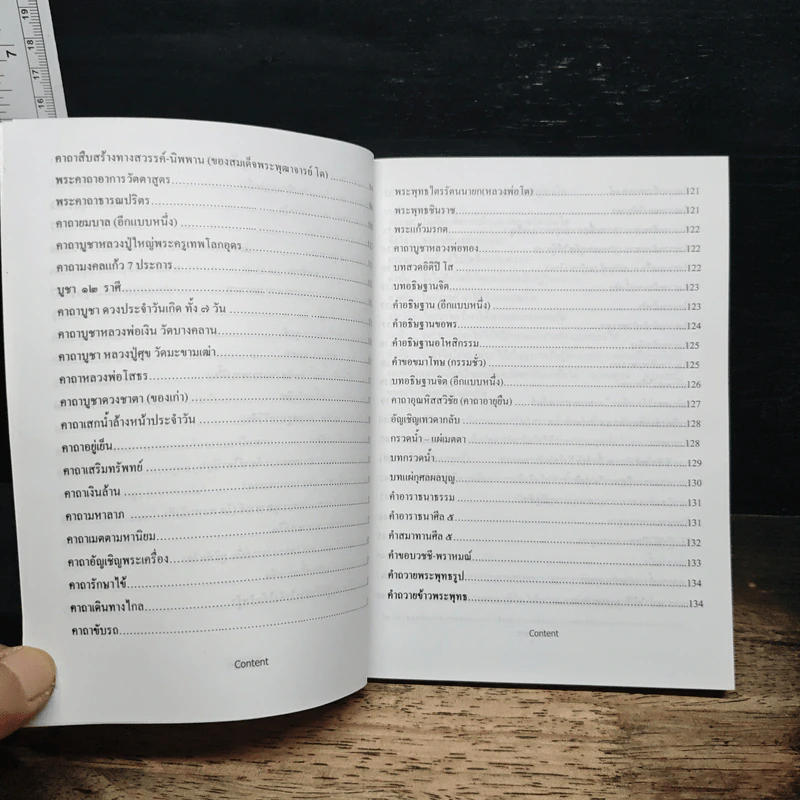 19
18
17
16
7
คาถาสืบสร้างทางสวรรค์-นิพพาน (ของสมเด็จพระพุฒาจารย์ โต)
พระคาถาอาการวัตตาสูตร
พระคาถาธารณปริตร
คาถายมบาล (อีกแบบหนึ่ง)
คาถาบูชาหลวงปู่ใหญ่พระครูเทพโลกอุดร
คาถามงคลแก้ว 7 ประการ
บูชา ๑๒ ราศี
คาถาบูชา ดวงประจำวันเกิด ทั้ง ๗ วัน
คาถาบูชาหลวงพ่อเงิน วัดบางคลาน
คาถาบูชา หลวงปู่ศุข วัดมะขามเฒ่า
คาถาหลวงพ่อโสธร
คาถาบูชาดวงชาตา (ของเก่า)
คาถาเสกน้ำล้างหน้าประจำวัน
คาถาอยู่เย็น
คาถาเสริมทรัพย์
คาถาเงินล้าน
คาถามหาลาภ
คาถาเมตตามหานิยม
คาถาอัญเชิญพระเครื่อง
คาถารักษาไข้
คาถาเดินทางไกล
คาถาขับรถ
Content
พระพุทธไตรรัตนนายก(หลวงพ่อโต) 121
พระพุทธชินราช 121
พระแก้วมรกต 122
คาถาบูชาหลวงพ่อทอง 122
บทสวดอิติปิ โส 122
บทอธิษฐานจิต 123
คำอธิษฐาน (อีกแบบหนึ่ง) 123
คำอธิษฐานขอพร 124
คำอธิษฐานอโหสิกรรม 125
คำขอขมาโทษ (กรรมชั่ว) 125
บทอธิษฐานจิต (อีกแบบหนึ่ง) 126
คาถาอุณหิสสวิชัย (คาถาอายุยืน) 127
อัญเชิญเทวดากลับ 128
กรวดน้ำ – แผ่เมตตา 128
บทกรวดน้ำ 129
บทแผ่กุศลผลบุญ 130
คำอาราธนาธรรม 131
คำอาราธนาศีล ๕ 131
คำสมาทานศีล ๕ 132
คำขอบวชชี-พราหมณ์ 133
คำถวายพระพุทธรูป 134
คำถวายข้าวพระพุทธ 134
Content